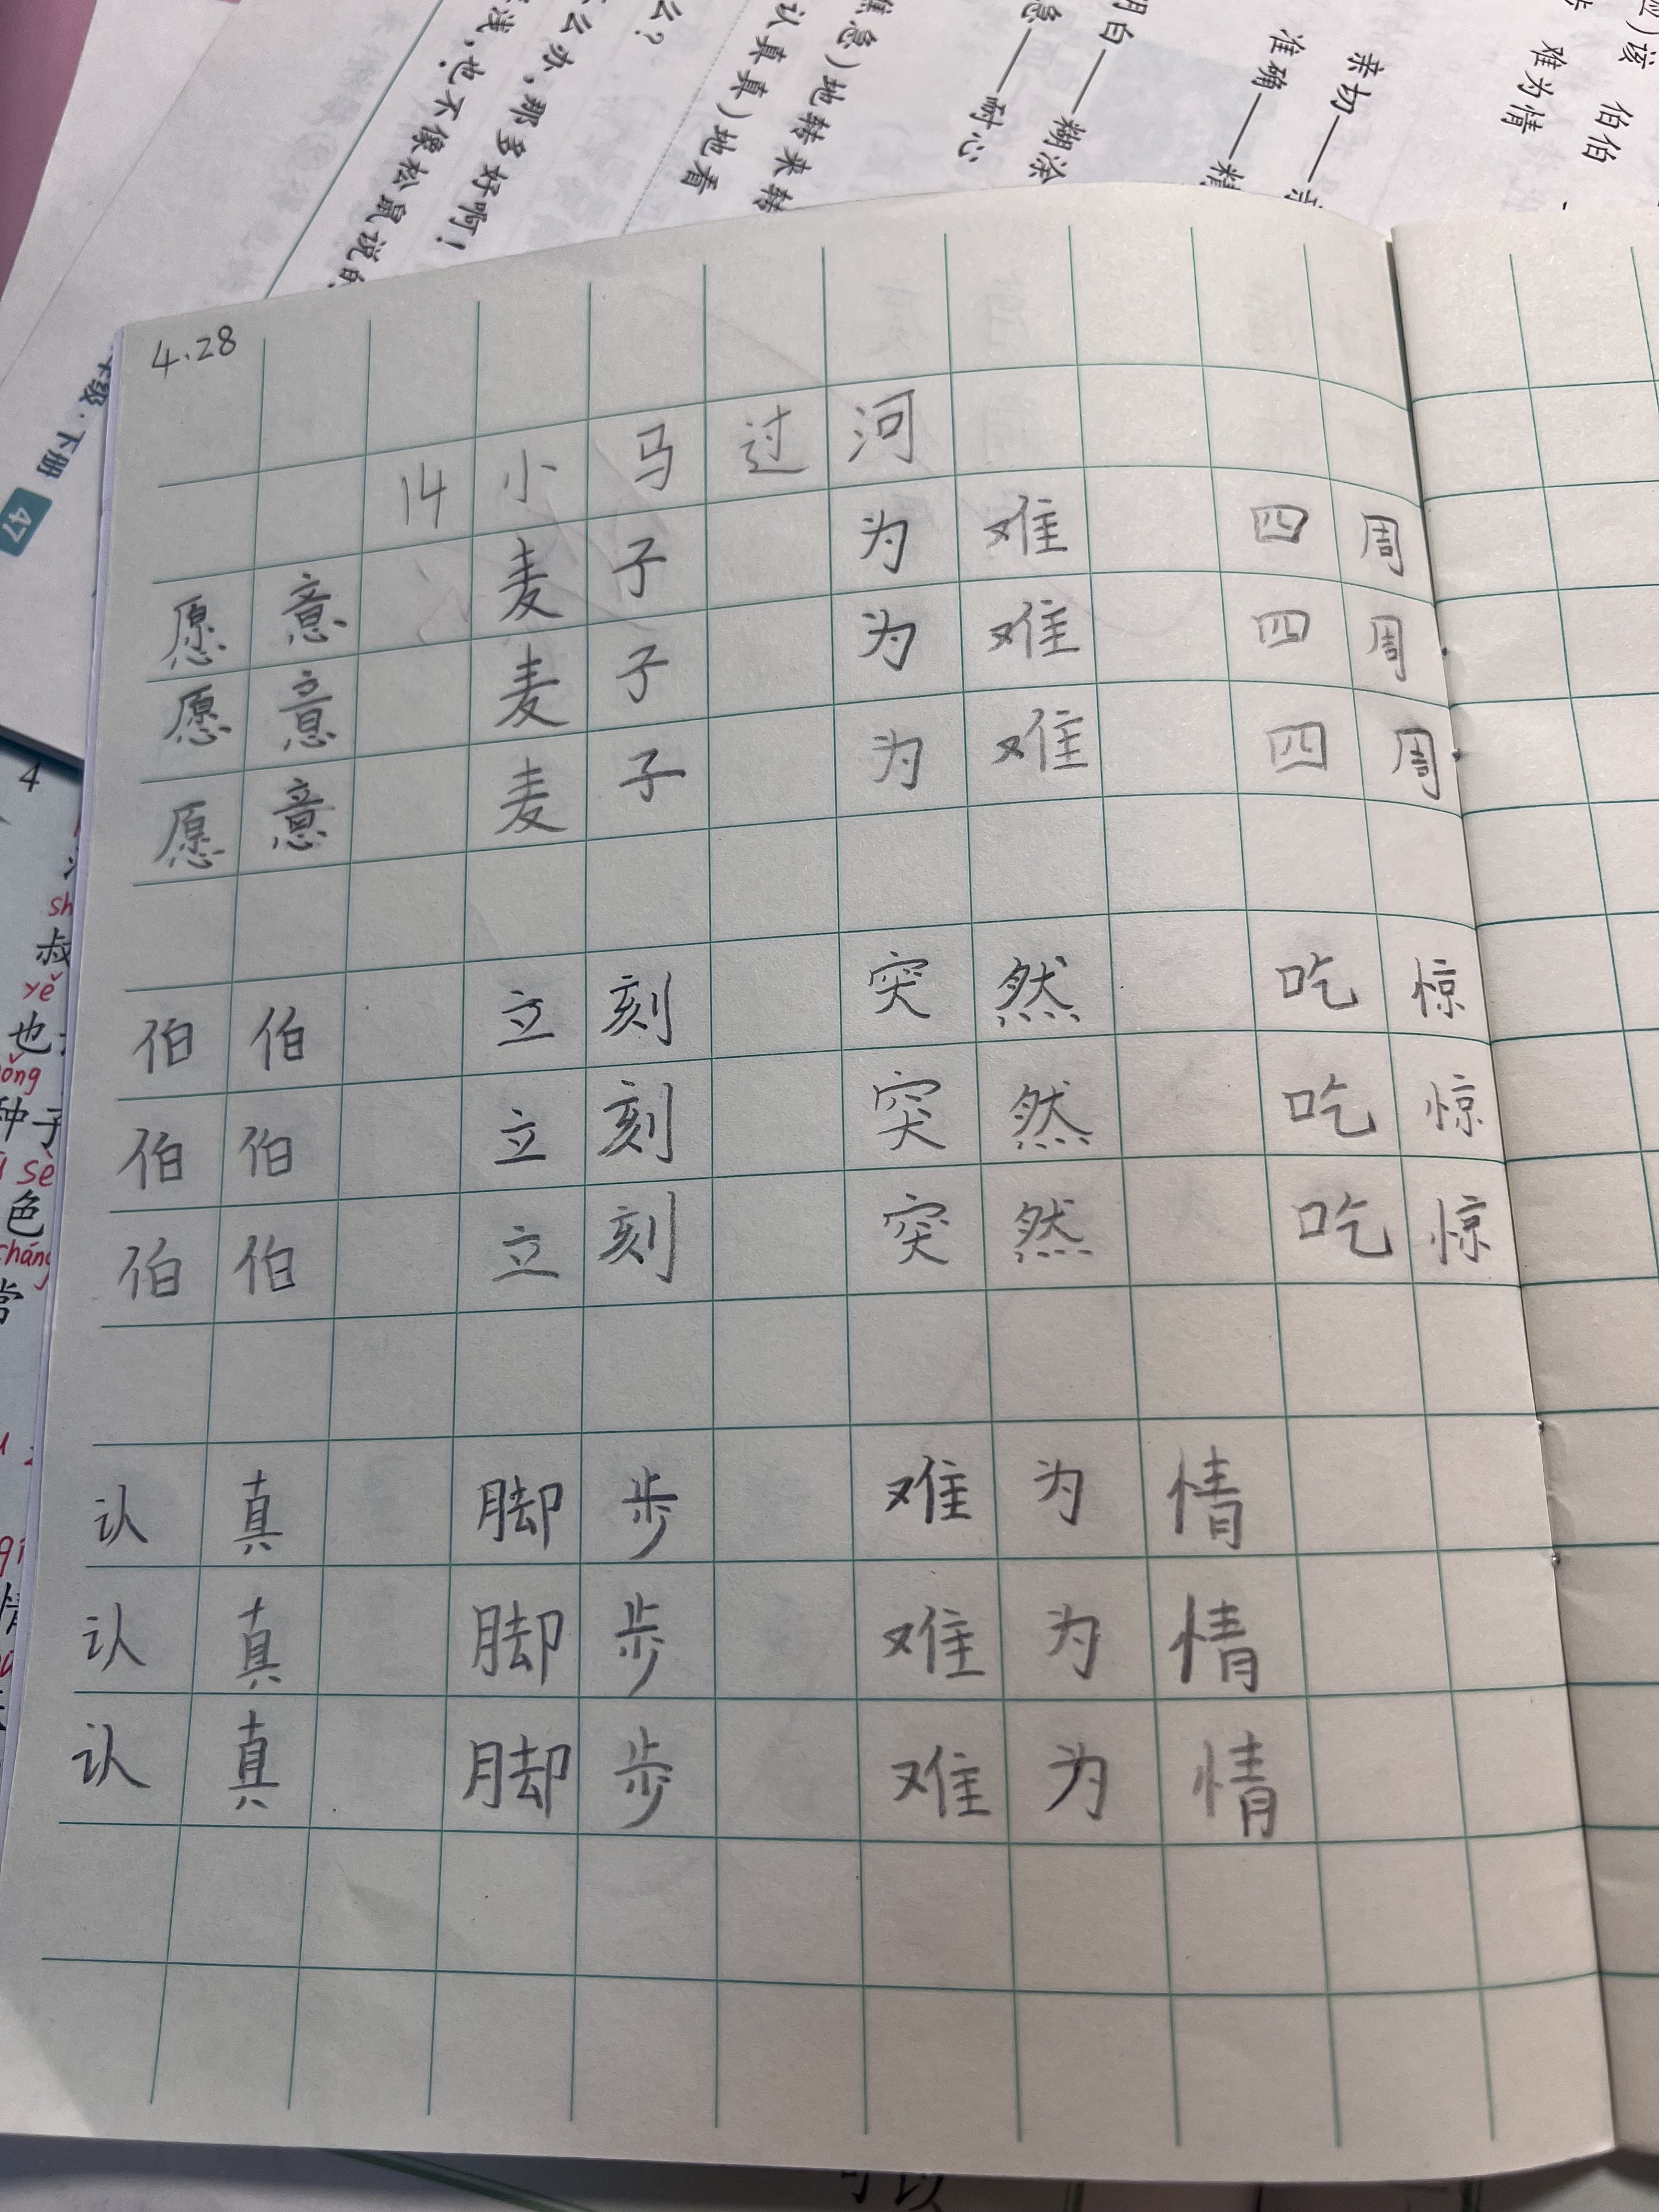 么？
么办,那多好啊！
浅,也不像松鼠说的
焦急)地转来转
认真真)地看
明白——糊涂
急——耐心
亲切——
准确——精
该 伯伯
难为情
年级·下册 47
4.28
14 小马过河
愿意 麦子 为难 四周
愿意 麦子 为难 四周
愿意 麦子 为难 四周
伯伯 立刻 突然 吃惊
伯伯 立刻 突然 吃惊
伯伯 立刻 突然 吃惊
认真 脚步 难为情
认真 脚步 难为情
认真 脚步 难为情
4
sh
叔
yě
也
ǒng
种子
sè
色
cháng
常
情
可以